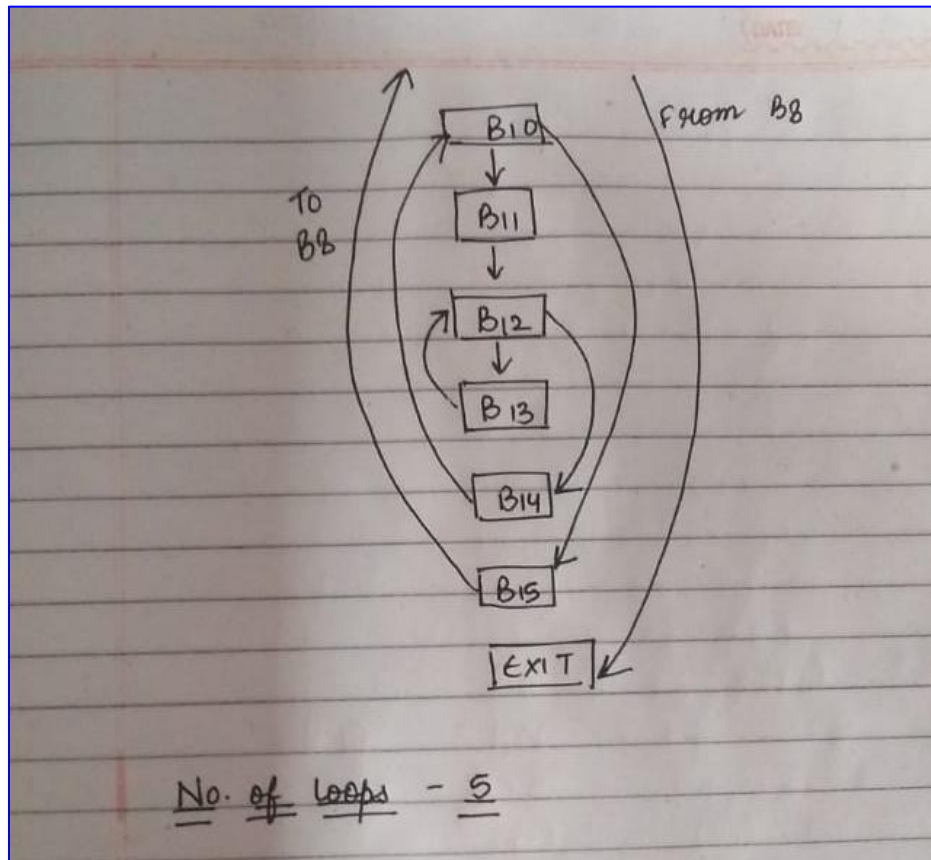 (DATE
B10
From B8
TO
B8
B11
B12
B13
B14
B15
EXIT
No. of loops - 5